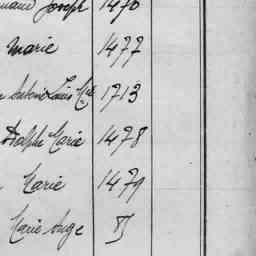 Joseph 1476
Marie 1477
Antoine Louis 1713
Adolphe Marie 1478
Marie 1479
Marie Ange